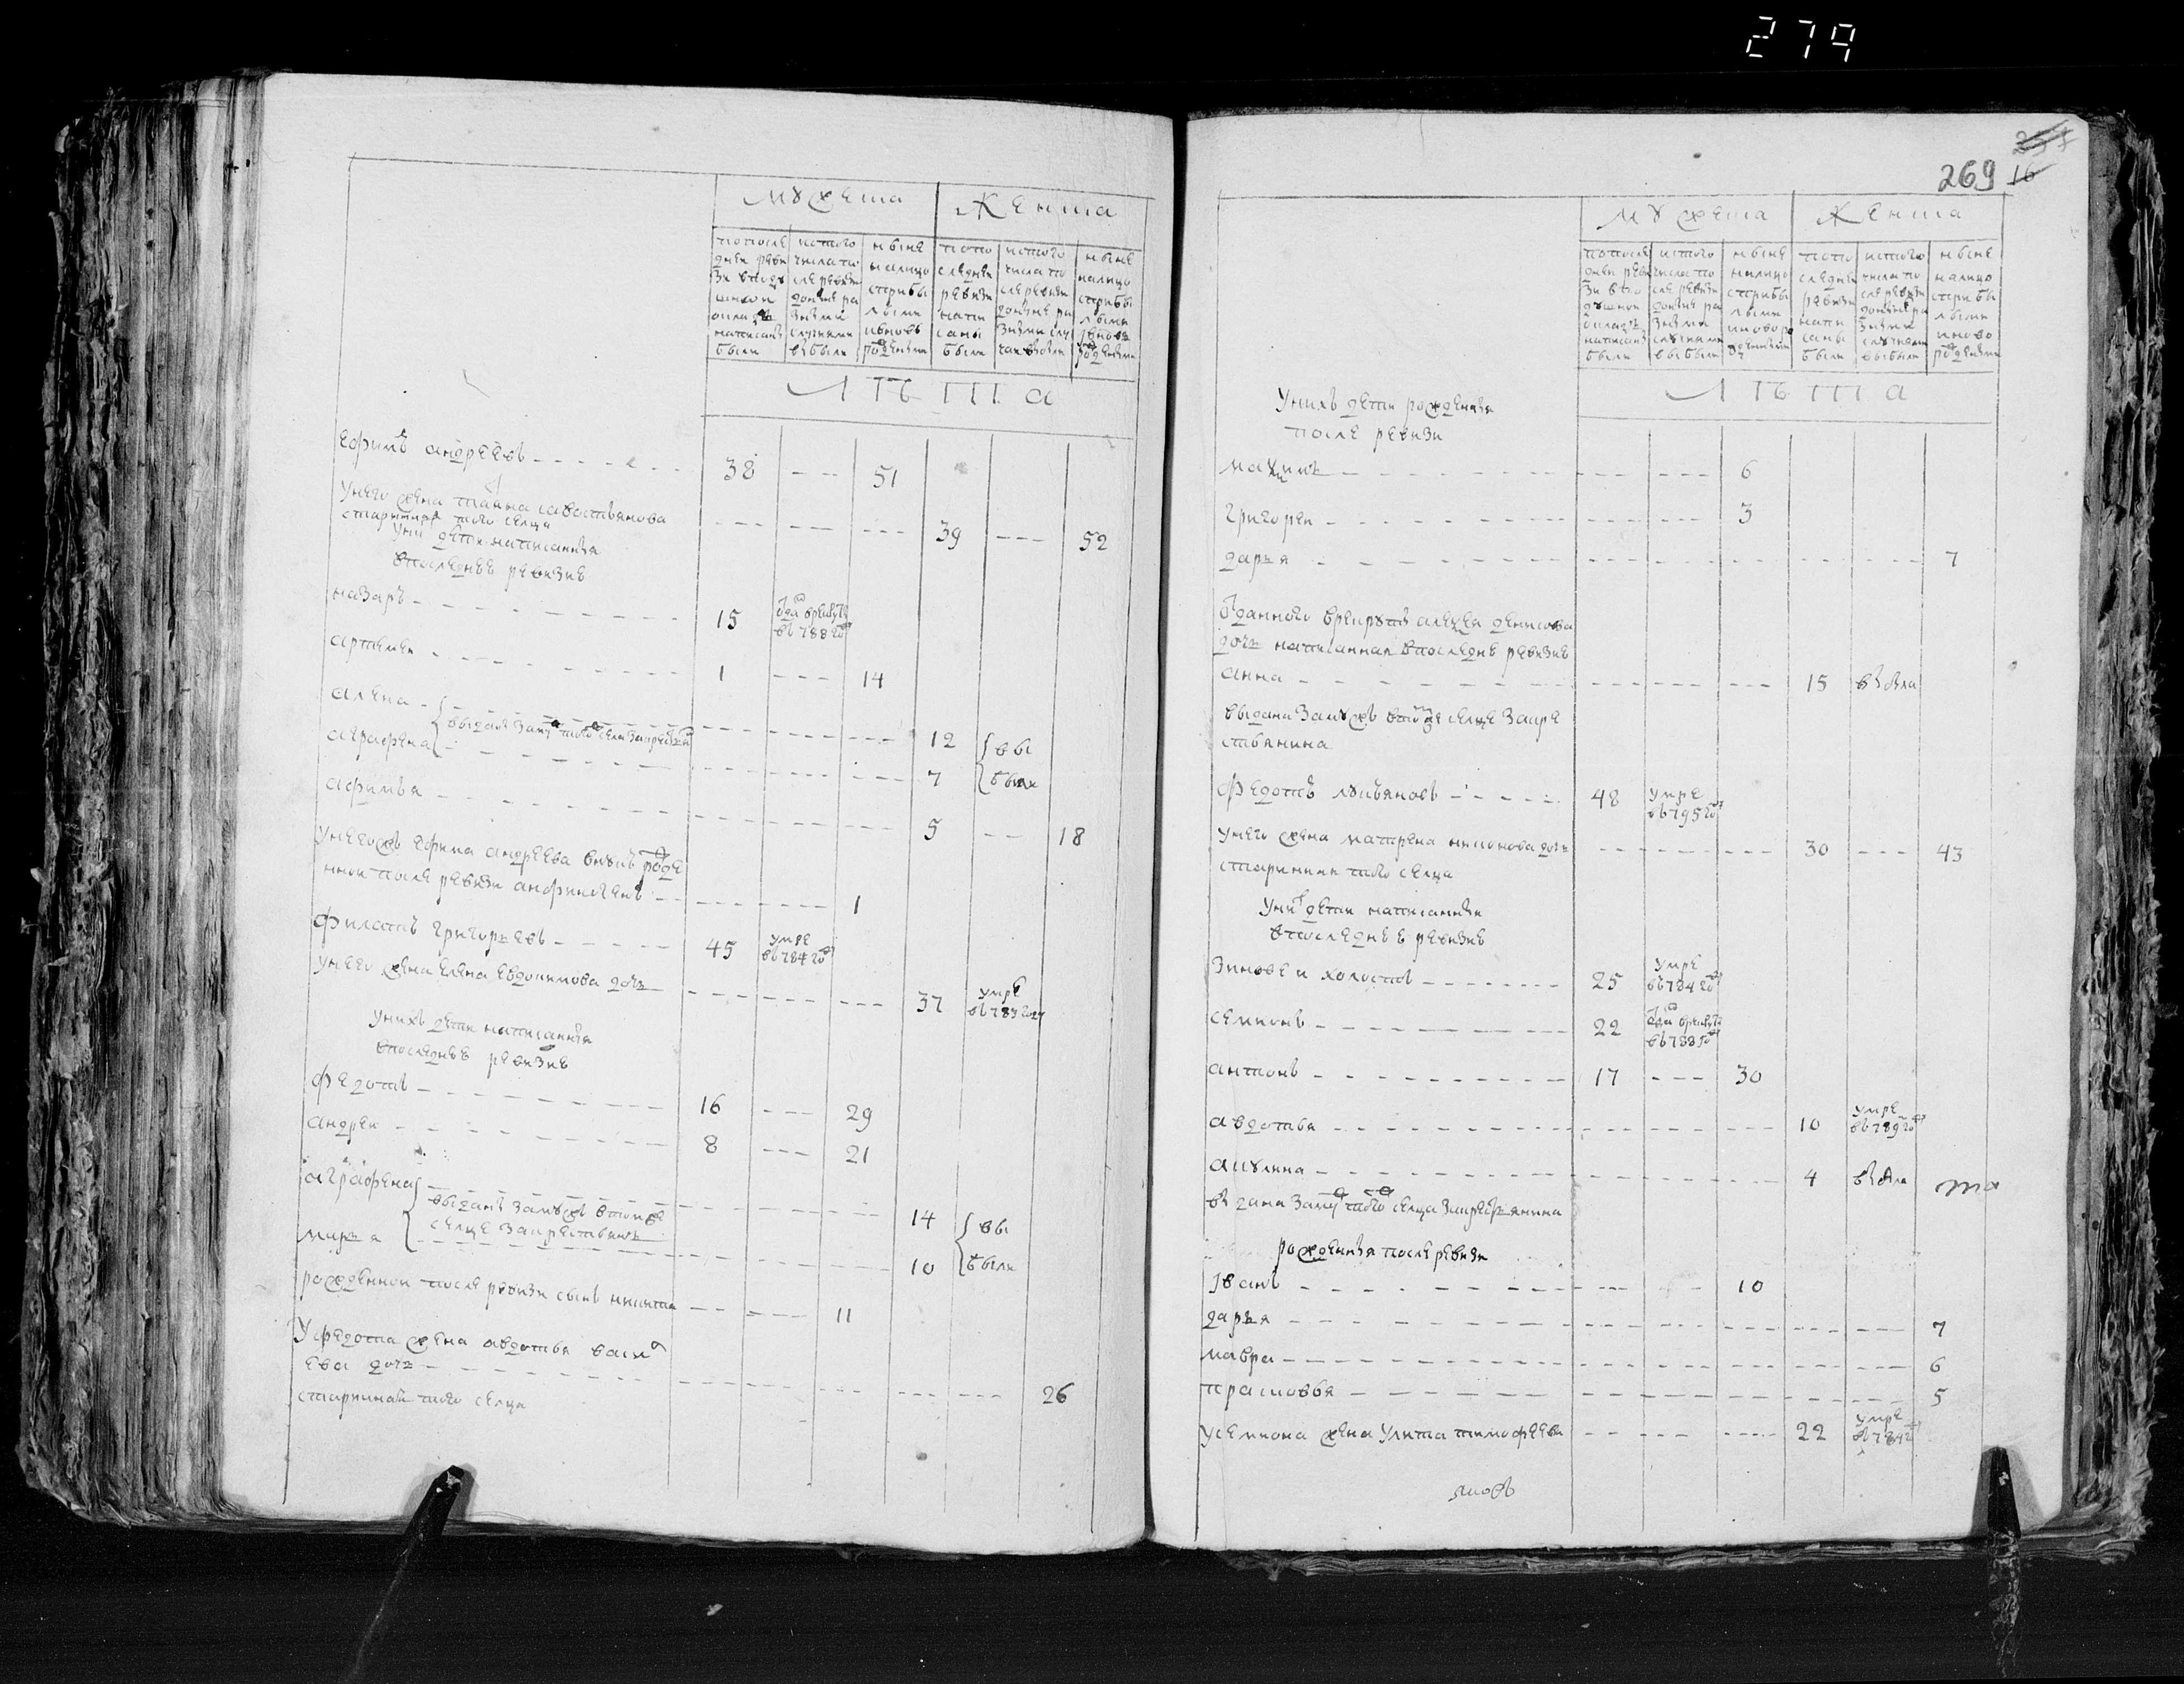 279
мужеска
женска
по последней ревизи в подушной окладъ написаны были
ис того числа после ревизи до ныне разными случаями выбыли
ныне налицо с прибылыми и вновь рожденными
по последней ревизи написаны были
ис того числа после ревизи до ныне разными случаями выбыли
ныне налицо с прибылыми и вновь рожденными
лѣта
ефимъ андреевъ 38 51
у него жена савостьянова
старинная того селца 39 52
у них дети написанныя
в последнеѣ ревизиѣ
назаръ 15 отдан в рекруты въ 788 году
артемеи 1 14
алена 12
выданы замуж того селца за крестьян
аграфена 7 выбыли
афимья 5 18
у него жъ ефима андреева внукъ рожде
нной после ревизи анфиногенъ 1
филатъ григорьевъ 45 умре въ 784 году
у него жена елена евдокимова дочь 37 умре въ 783 году
у нихъ дети написанныя
в последнеѣ ревизиѣ
федотъ 16 29
андреи 8 21
аграфена 14
выданы замужъ в томъ же
селце за крестьянъ
марья 10 выбыли
рожденной после ревизи сынъ никита 11
у федота жена авдотья васил
ева дочь 26
старинная того селца
257
269 16
мужеска
женска
по последней ревизи в подушной окладъ написаны были
ис того числа после ревизи до ныне разными случаями выбыли
ныне налицо с прибылыми и новорожденными
по последней ревизи написаны были
ис того числа после ревизи до ныне разными случаями выбыли
ныне налицо с прибылыми и ново рожденными
лѣта
у нихъ дети рожденныя
после ревизи
максимъ 6
григореи 3
дарья 7
отданного в рекруты алексея денисова
дочь написанная в последне ревизиѣ
анна 15 выбыла
выдана замужъ в том же селце за кре
стьянина
федотъ лукьяновъ 48 умре въ 795 году
у него жена матрена никонова дочь 30 43
старинная того селца
у них дети написанныя
в последнеѣ ревизиѣ
зиновеи холостъ 25 умре въ 784 году
семионъ 22 отдан в рекруты въ 788 году
антонъ 17 30
авдотья 10 умре въ 789 году
акулина 4 выбыла
выдана замуж того селца за крестьянина
рожденныя после ревизи
иванъ 10
дарья 7
мавра 6
прасковья 5
у семиона жена улита тимофеева 22 умре
яковъ